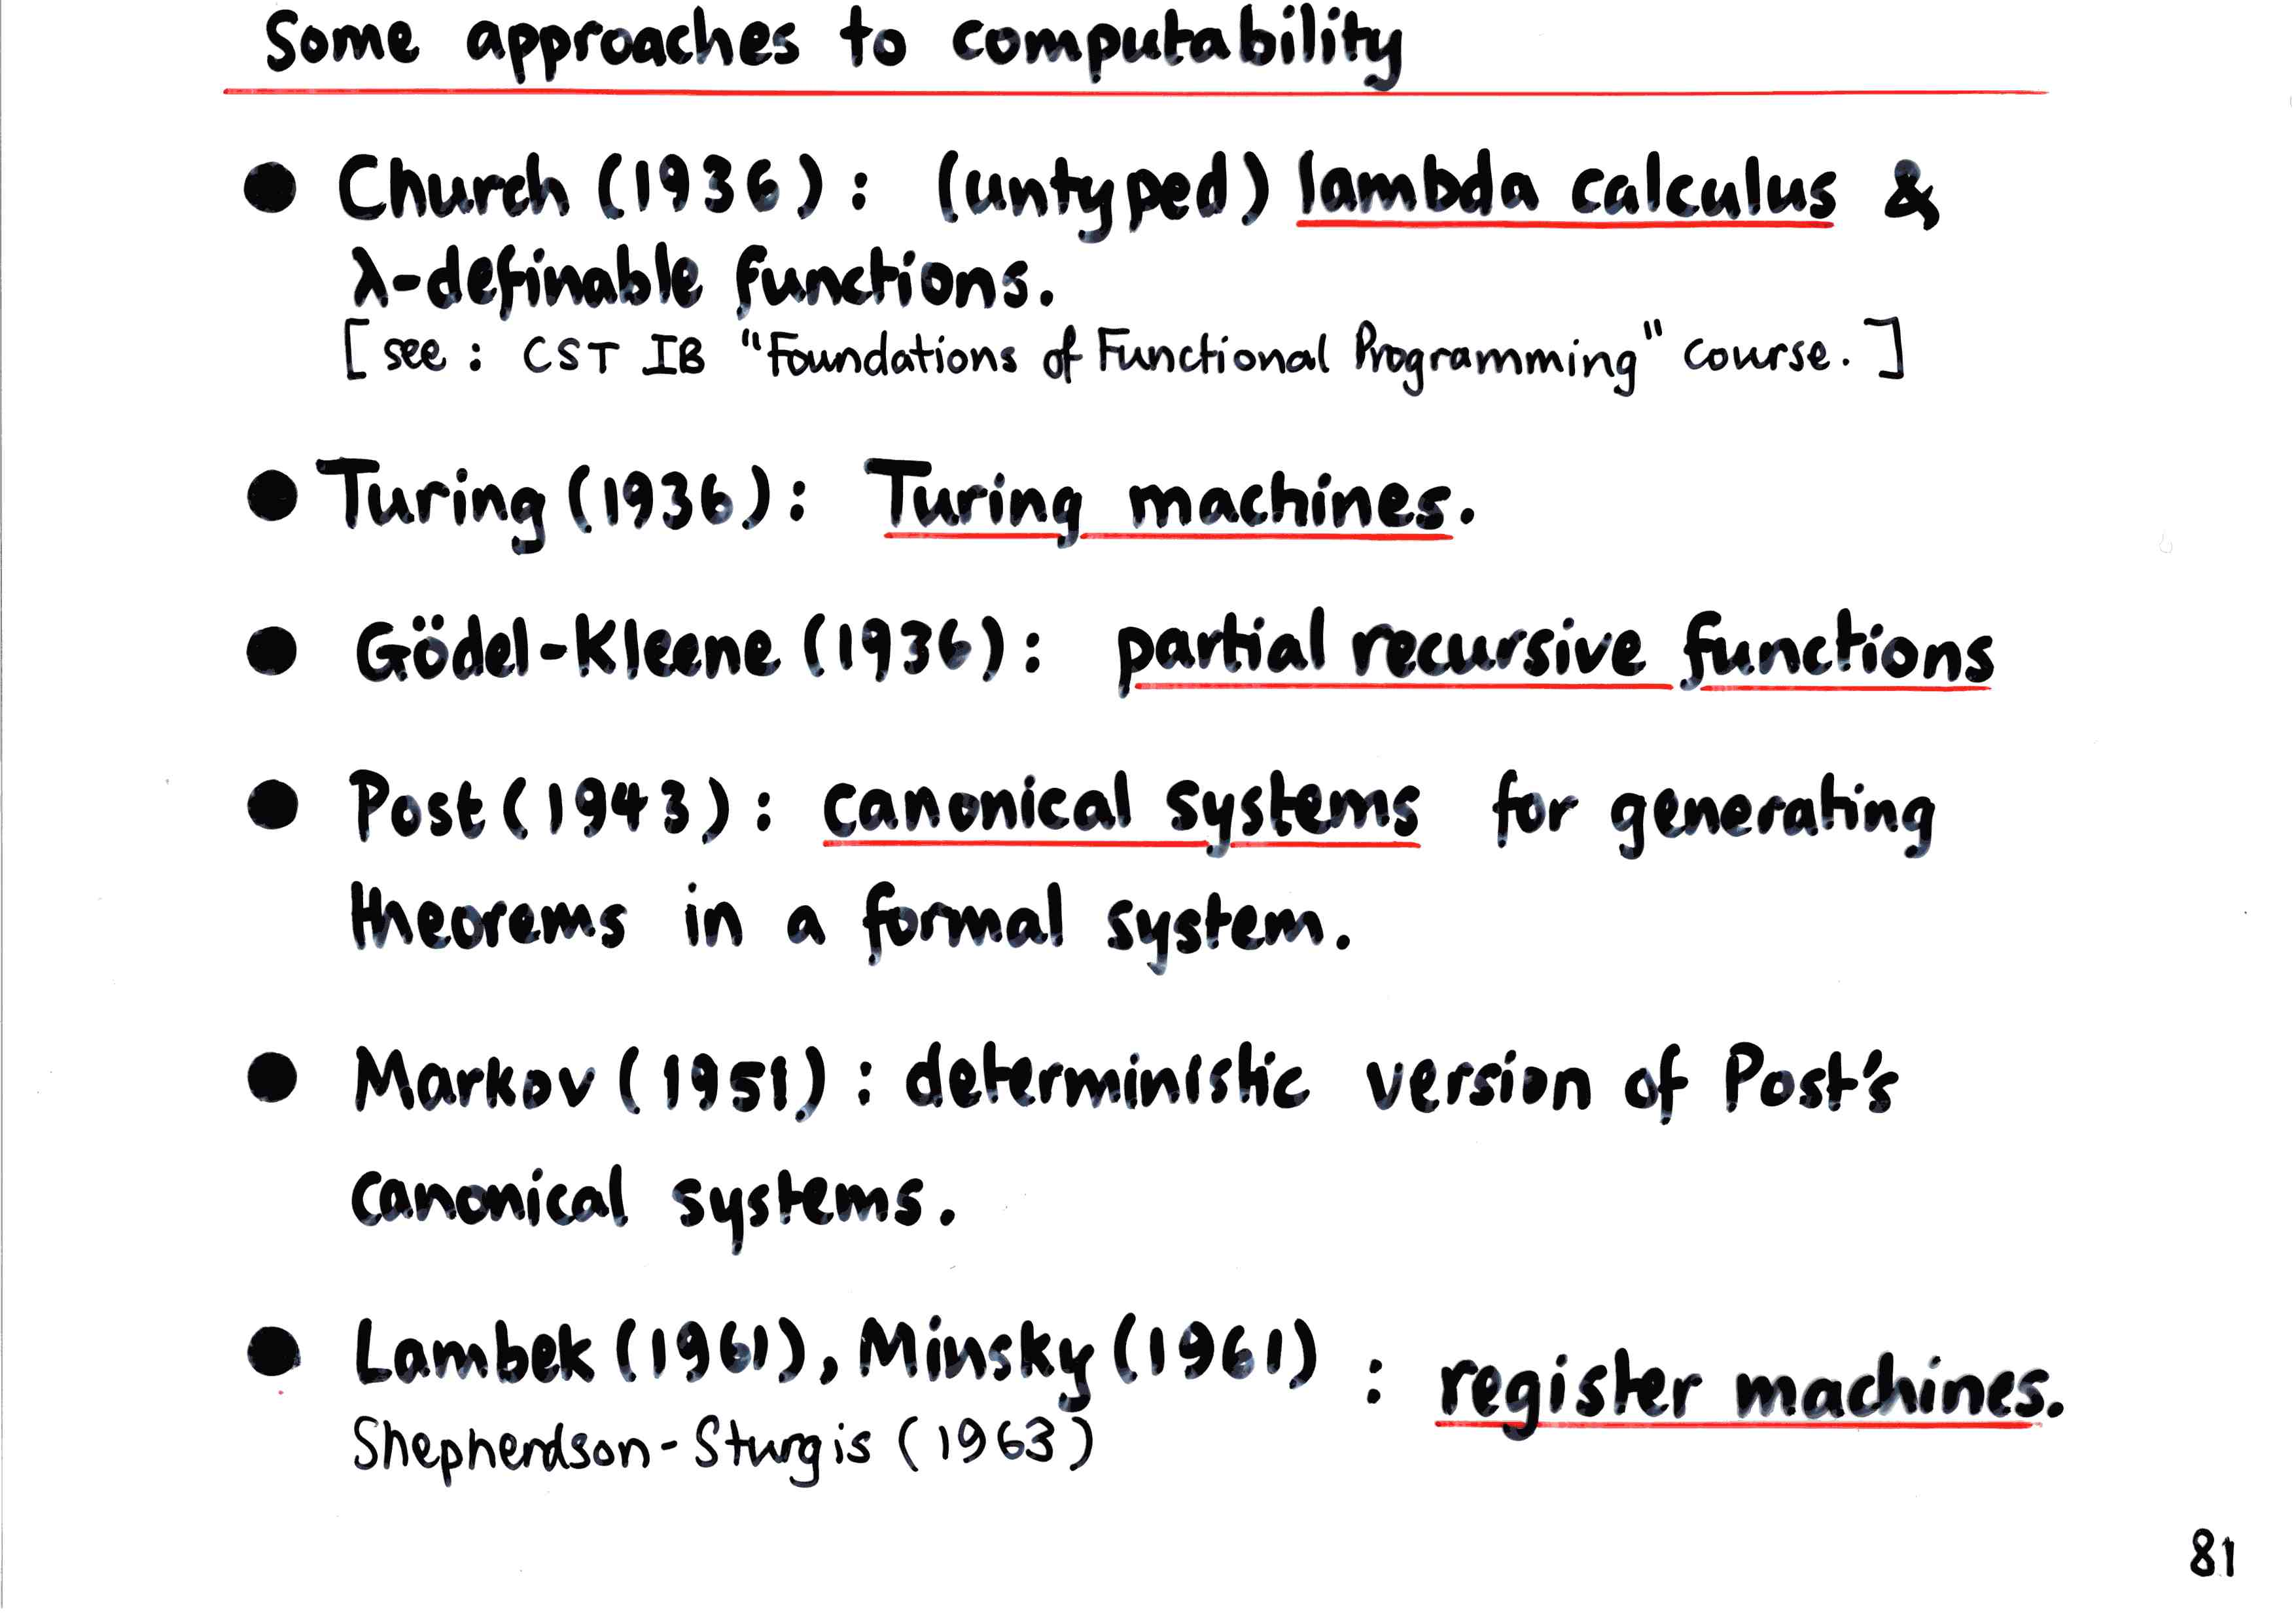 Some approaches to computability
● Church (1936): (untyped) lambda calculus &
λ-definable functions.
[see: CST IB "Foundations of Functional Programming" course.]
● Turing (1936): Turing machines.
● Gödel-Kleene (1936): partial recursive functions
● Post (1943): canonical systems for generating
theorems in a formal system.
● Markov (1951): deterministic version of Post's
canonical systems.
● Lambek (1961), Minsky (1961) : register machines.
Shepherdson-Sturgis (1963)
81